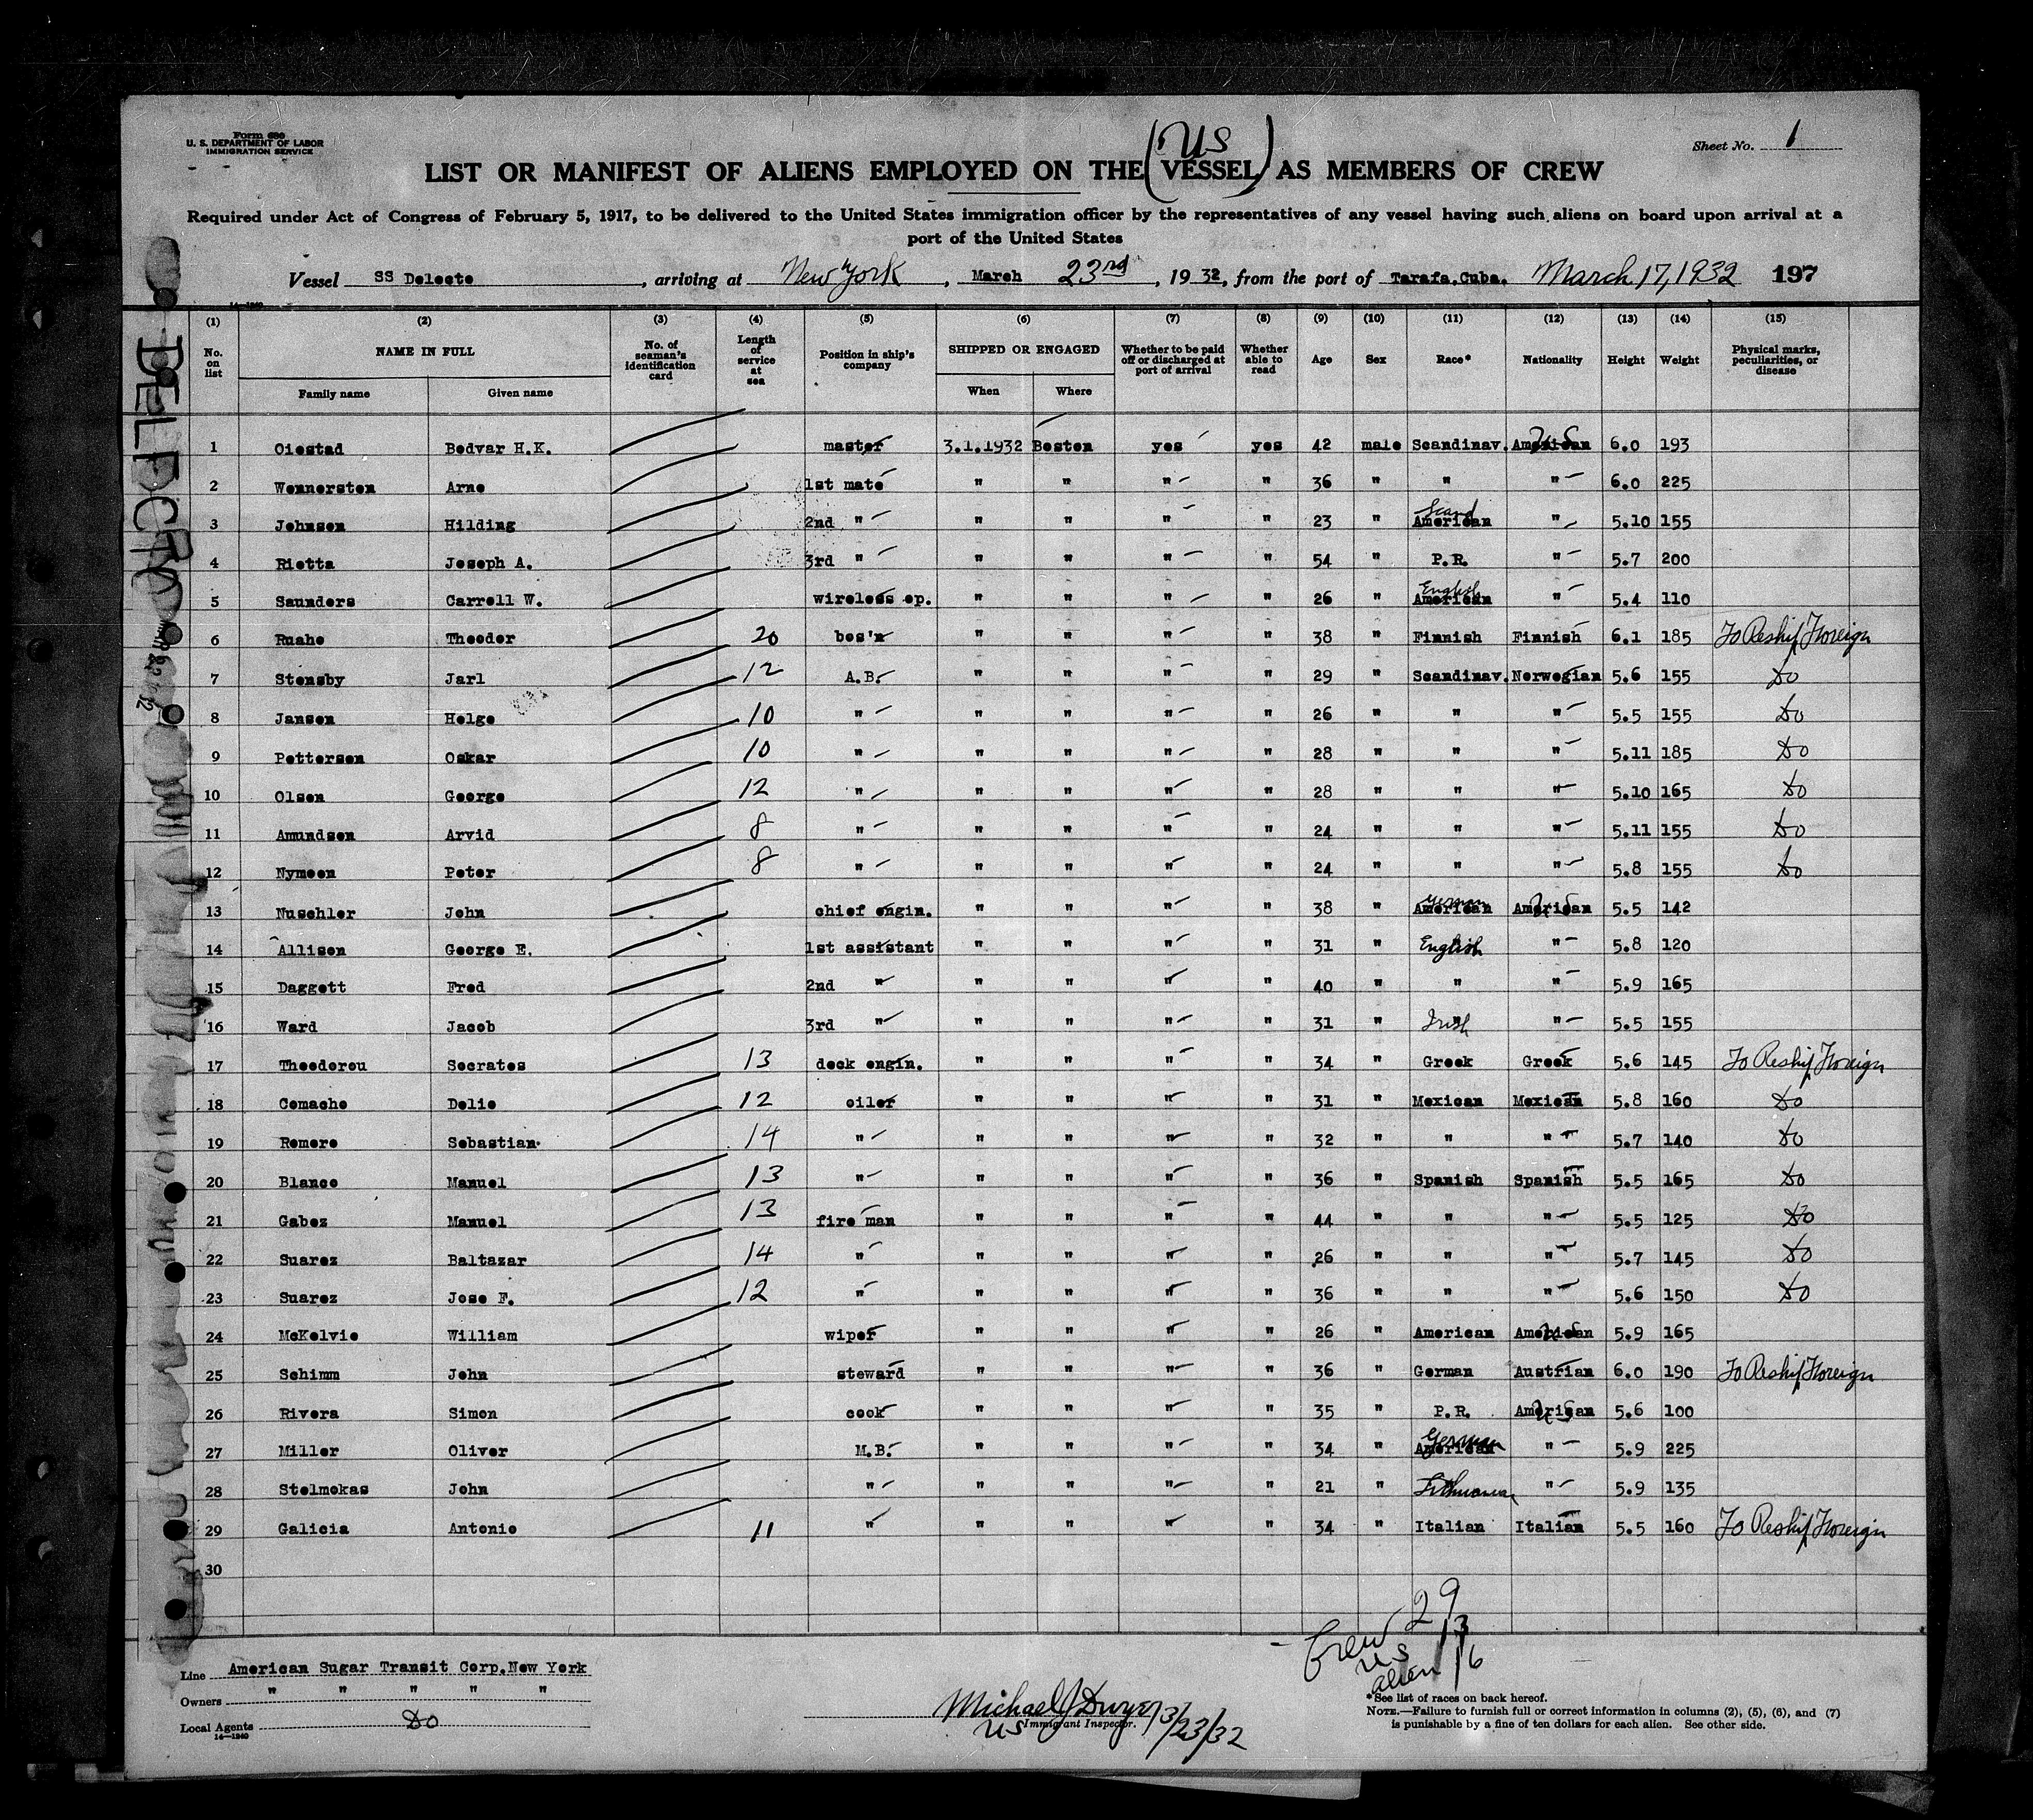 Form 680
U. S. DEPARTMENT OF LABOR
IMMIGRATION SERVICE
Sheet No. 1
(US)
LIST OR MANIFEST OF ALIENS EMPLOYED ON THE VESSEL AS MEMBERS OF CREW
Required under Act of Congress of February 5, 1917, to be delivered to the United States immigration officer by the representatives of any vessel having such aliens on board upon arrival at a
port of the United States
Vessel SS Deleete, arriving at New York, March 23rd, 1932, from the port of Tarafa.Cuba. March 17, 1932 197
14-1240
(1) (2) (3) (4) (5) (6) (7) (8) (9) (10) (11) (12) (13) (14) (15)
No. on list NAME IN FULL No. of seaman's identification card Length of service at sea Position in ship's company SHIPPED OR ENGAGED Whether to be paid off or discharged at port of arrival Whether able to read Age Sex Race* Nationality Height Weight Physical marks, peculiarities, or disease
Family name Given name When Where
1 Oiestad Bedvar H.K. master 3.1.1932 Besten yes yes 42 male Scandinav. American US 6.0 193
2 Wennersten Arne 1st mate " " " " 36 " " " 6.0 225
3 Jehnsen Hilding 2nd " " " " " 23 " American Scand " 5.10 155
4 Rietta Jeseph A. 3rd " " " " " 54 " P.R. " 5.7 200
5 Saunders Carrell W. wireless ep. " " " " 26 " American English " 5.4 110
6 Ruahe Theeder 20 bes'n " " " " 38 " Finnish Finnish 6.1 185 To Reship Foreign
7 Stensby Jarl 12 A.B. " " " " 29 " Scandinav. Nerwegian 5.6 155 Do
8 Jansen Helge 10 " " " " " 26 " " " 5.5 155 Do
9 Pettersen Oskar 10 " " " " " 28 " " " 5.11 185 Do
10 Olsen Geerge 12 " " " " " 28 " " " 5.10 165 Do
11 Amundsen Arvid 8 " " " " " 24 " " " 5.11 155 Do
12 Nymeen Peter 8 " " " " " 24 " " " 5.8 155 Do
13 Nuschler Jehn chief engin. " " " " 38 " American German American US 5.5 142
14 Allisen Geerge E. 1st assistant " " " " 31 " English " 5.8 120
15 Daggett Fred 2nd " " " " " 40 " " " 5.9 165
16 Ward Jaceb 3rd " " " " " 31 " Irish " 5.5 155
17 Theederou Secrates 13 deck engin. " " " " 34 " Greek Greek 5.6 145 To Reship Foreign
18 Cemache Delie 12 eiler " " " " 31 " Mexican Mexican 5.8 160 Do
19 Remere Sebastian 14 " " " " " 32 " " " 5.7 140 Do
20 Blance Manuel 13 " " " " " 36 " Spanish Spanish 5.5 165 Do
21 Gabez Manuel 13 fire man " " " " 44 " " " 5.5 125 Do
22 Suarez Baltazar 14 " " " " " 26 " " " 5.7 145 Do
23 Suarez Jose F. 12 " " " " " 36 " " " 5.6 150 Do
24 McKelvie William wiper " " " " 26 " American American US 5.9 165
25 Schimm Jehn steward " " " " 36 " German Austrian 6.0 190 To Reship Foreign
26 Rivera Simen ceek " " " " 35 " P.R. American US 5.6 100
27 Miller Oliver M.B. " " " " 34 " American German " 5.9 225
28 Stelmekas Jehn " " " " " 21 " Lithuanian " 5.9 135
29 Galicia Antenie 11 " " " " " 34 " Italian Italian 5.5 160 To Reship Foreign
30
Crew 29
US 13
alien 16
Line American Sugar Transit Corp.New York
Owners " " " " "
Local Agents Do
14-1240
Michael J Dwyer 3/23/32
US Immigrant Inspector.
*See list of races on back hereof.
NOTE.—Failure to furnish full or correct information in columns (2), (5), (6), and (7)
is punishable by a fine of ten dollars for each alien. See other side.